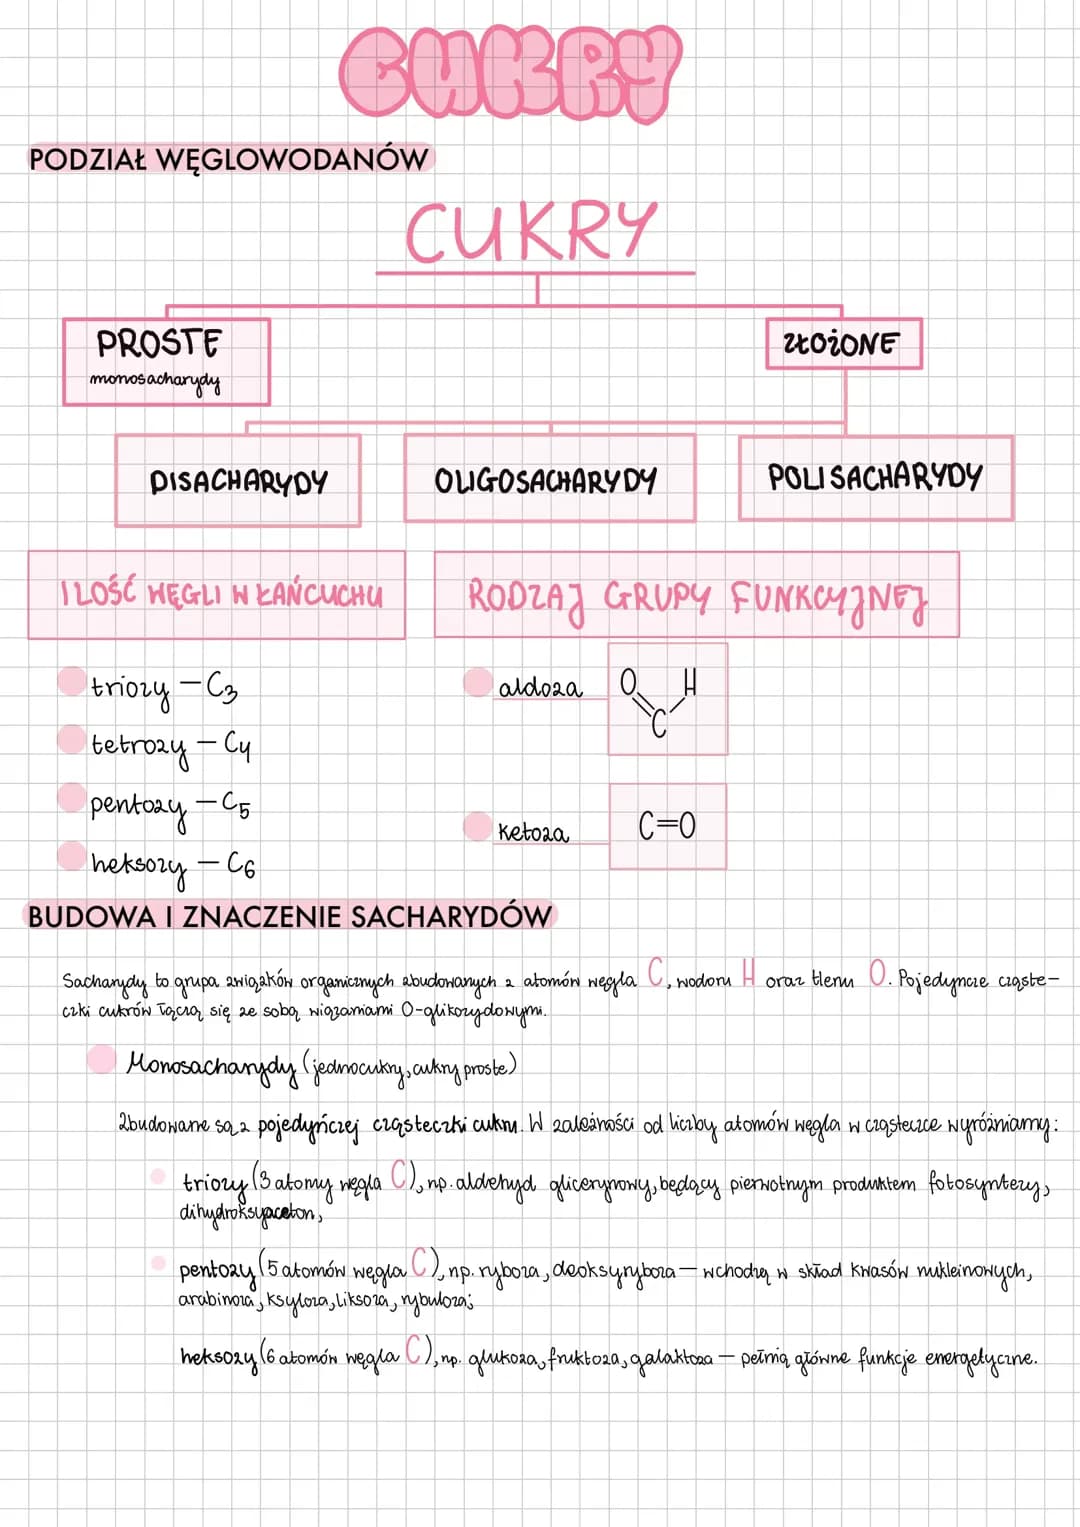 CUKRY
PODZIAŁ WĘGLOWODANÓW
CUKRY
PROSTE
monosacharydy
ZŁOŻONE
DISACHARYDY
OLIGOSACHARYDY
POLISACHARYDY
ILOŚĆ WĘGLI W ŁAŃCUCHU
RODZAJ GRUPY FUNKCYJNEJ
triozy – C3
tetrozy – C4
pentozy – C5
heksozy – C6
aldoza
O H
C
ketoza
C=O
BUDOWA I ZNACZENIE SACHARYDÓW
Sacharydy to grupa związków organicznych zbudowanych z atomów węgla C, wodoru H oraz tlenu O. Pojedyncze cząste-
czki cukrów łączą się ze sobą wiązaniami O-glikozydowymi.
Monosacharydy (jednocukry, cukry proste)
Zbudowane są z pojedyńczej cząsteczki cukru. W zależności od liczby atomów węgla w cząsteczce wyróżniamy:
triozy (3 atomy węgla C), np. aldehyd glicerynowy, będący pierwotnym produktem fotosyntezy,
dihydroksyaceton,
pentozy (5 atomów węgla C), np. ryboza, deoksyryboza – wchodzą w skład kwasów nukleinowych,
arabinoza, ksyloza, liksoza, rybuloza;
heksozy (6 atomów węgla C), np. glukoza, fruktoza, galaktoza – pełnią główne funkcje energetyczne.